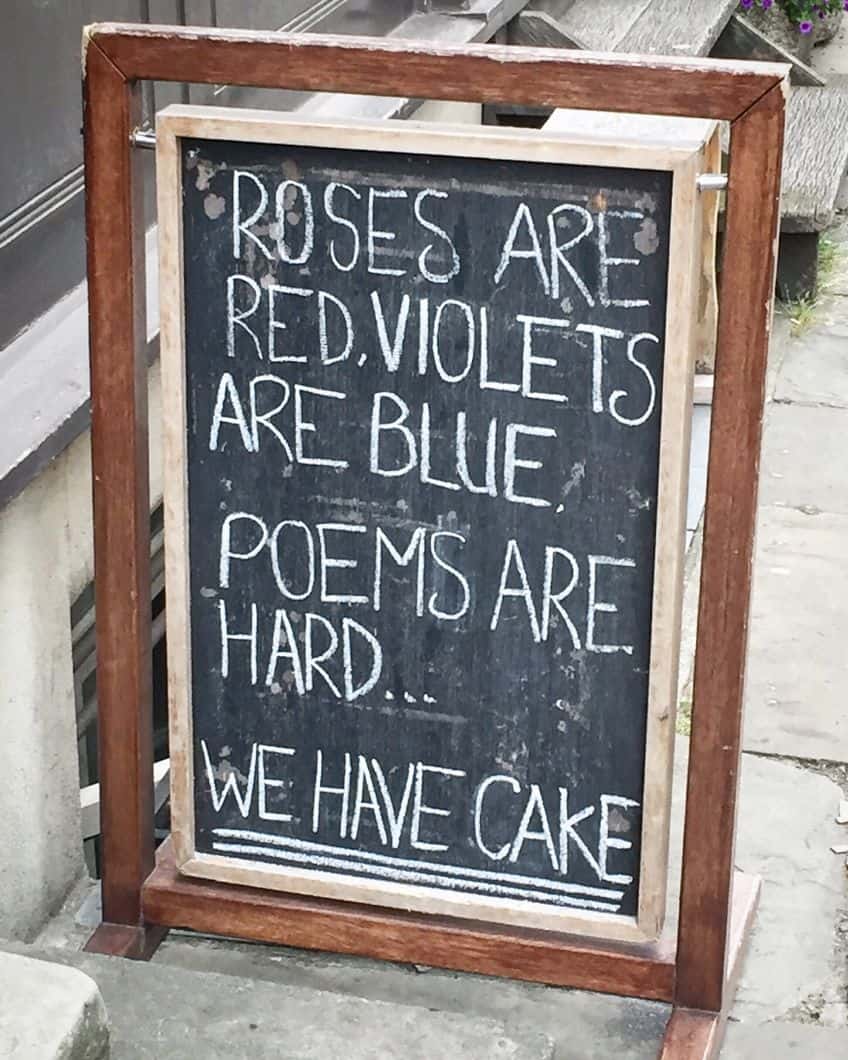 ROSES ARE
RED, VIOLETS
ARE BLUE,
POEMS ARE
HARD...
WE HAVE CAKE